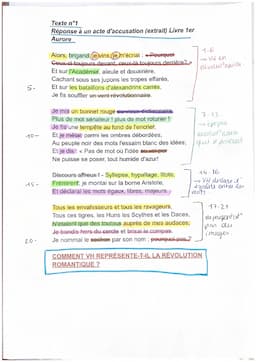 Texte n°1
Réponse à un acte d'accusation (extrait) Livre 1er
Aurore
Alors, brigand, je vins, je m'écriai : « Pourquoi
Ceux-ci toujours devant, ceux-là toujours derrière? »
1-6
→ VH en
Et sur l'Académie, aïeule et douairière,
Cachant sous ses jupons les tropes effarés,
5-
Et sur les bataillons d'alexandrins carrés,
Je fis souffler un vent révolutionnaire.
Je mis un bonnet rouge au vieux dictionnaire.
Plus de mot sénateur ! plus de mot roturier !
7-13
Je fis une tempête au fond de l'encrier,
10-
Et je mêlai, parmi les ombres débordées,
Au peuple noir des mots l'essaim blanc des idées;
Et je dis : « Pas de mot où l'idée
Ne puisse se poser, tout humide d'azur!
Discours affreux ! - Syllepse, hypallage, litote,
14-16
15-
Frémirent; je montai sur la borne Aristote,
Et déclarai les mots égaux, libres, majeurs.
Tous les envahisseurs et tous les ravageurs,
17-21
Tous ces tigres, les Huns les Scythes et les Daces,
N'étaient que des toutous auprès de mes audaces;
Je bondis hors du cercle et brisai le compas.
20-
Je nommai le cochon par son nom ; pourquoi pas ?
images
COMMENT VH REPRÉSENTE-T-IL LA RÉVOLUTION
ROMANTIQUE ?